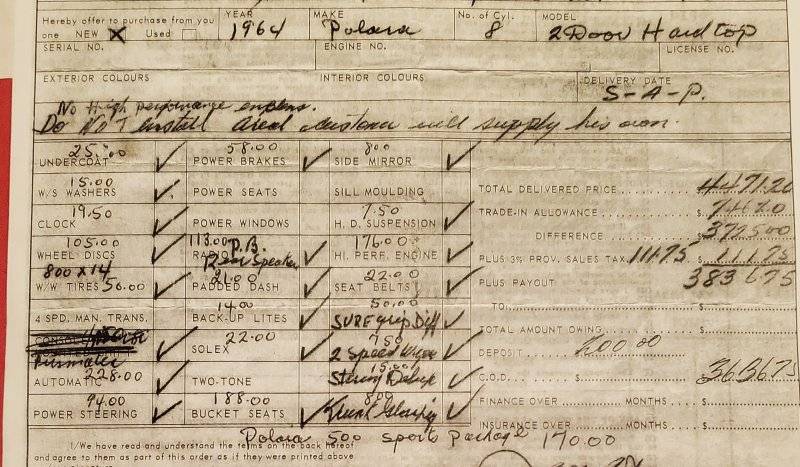 Hereby offer to purchase from you YEAR MAKE No. of Cyl. MODEL
one NEW X Used 1964 Polara 8 2 Door Hardtop
SERIAL NO. ENGINE NO. LICENSE NO.
EXTERIOR COLOURS INTERIOR COLOURS DELIVERY DATE
S-A-P.
No High performance emblems.
Do NOT install areal customer will supply his own.
25.00 58.00 8.00
UNDERCOAT ✓ POWER BRAKES ✓ SIDE MIRROR ✓
15.00
W/S WASHERS ✓ POWER SEATS SILL MOULDING TOTAL DELIVERED PRICE $ 4471.20
19.50 7.50 TRADE-IN ALLOWANCE $ 746.20
CLOCK ✓ POWER WINDOWS H. D. SUSPENSION ✓ DIFFERENCE $ 3725.00
105.00 113.00 P.B. 176.00
WHEEL DISCS ✓ RADIO Rear Speaker ✓ HI. PERF. ENGINE ✓ PLUS 3% PROV. SALES TAX 111.75 $ 111.75
800 x 14 21.00 22.00
W/W TIRES 56.00 ✓ PADDED DASH ✓ SEAT BELTS ✓ PLUS PAYOUT $ 3836.75
14.00 50.00 TO $
4 SPD. MAN. TRANS. BACK-UP LITES ✓ SURE grip Diff ✓ TOTAL AMOUNT OWING $
22.00 7.50
SOLEX ✓ 2 Speed ✓ DEPOSIT 200.00 $
228.00 15.00
AUTOMATIC ✓ TWO-TONE Deluxe ✓ C.O.D. $ 3636.75
94.00 188.00 8.00 FINANCE OVER MONTHS $
POWER STEERING ✓ BUCKET SEATS ✓ Trunk ✓ INSURANCE OVER MONTHS $
Polara 500 sports package 170.00
1/We have read and understand the terms on the back hereof
and agree to them as part of this order as if they were printed above